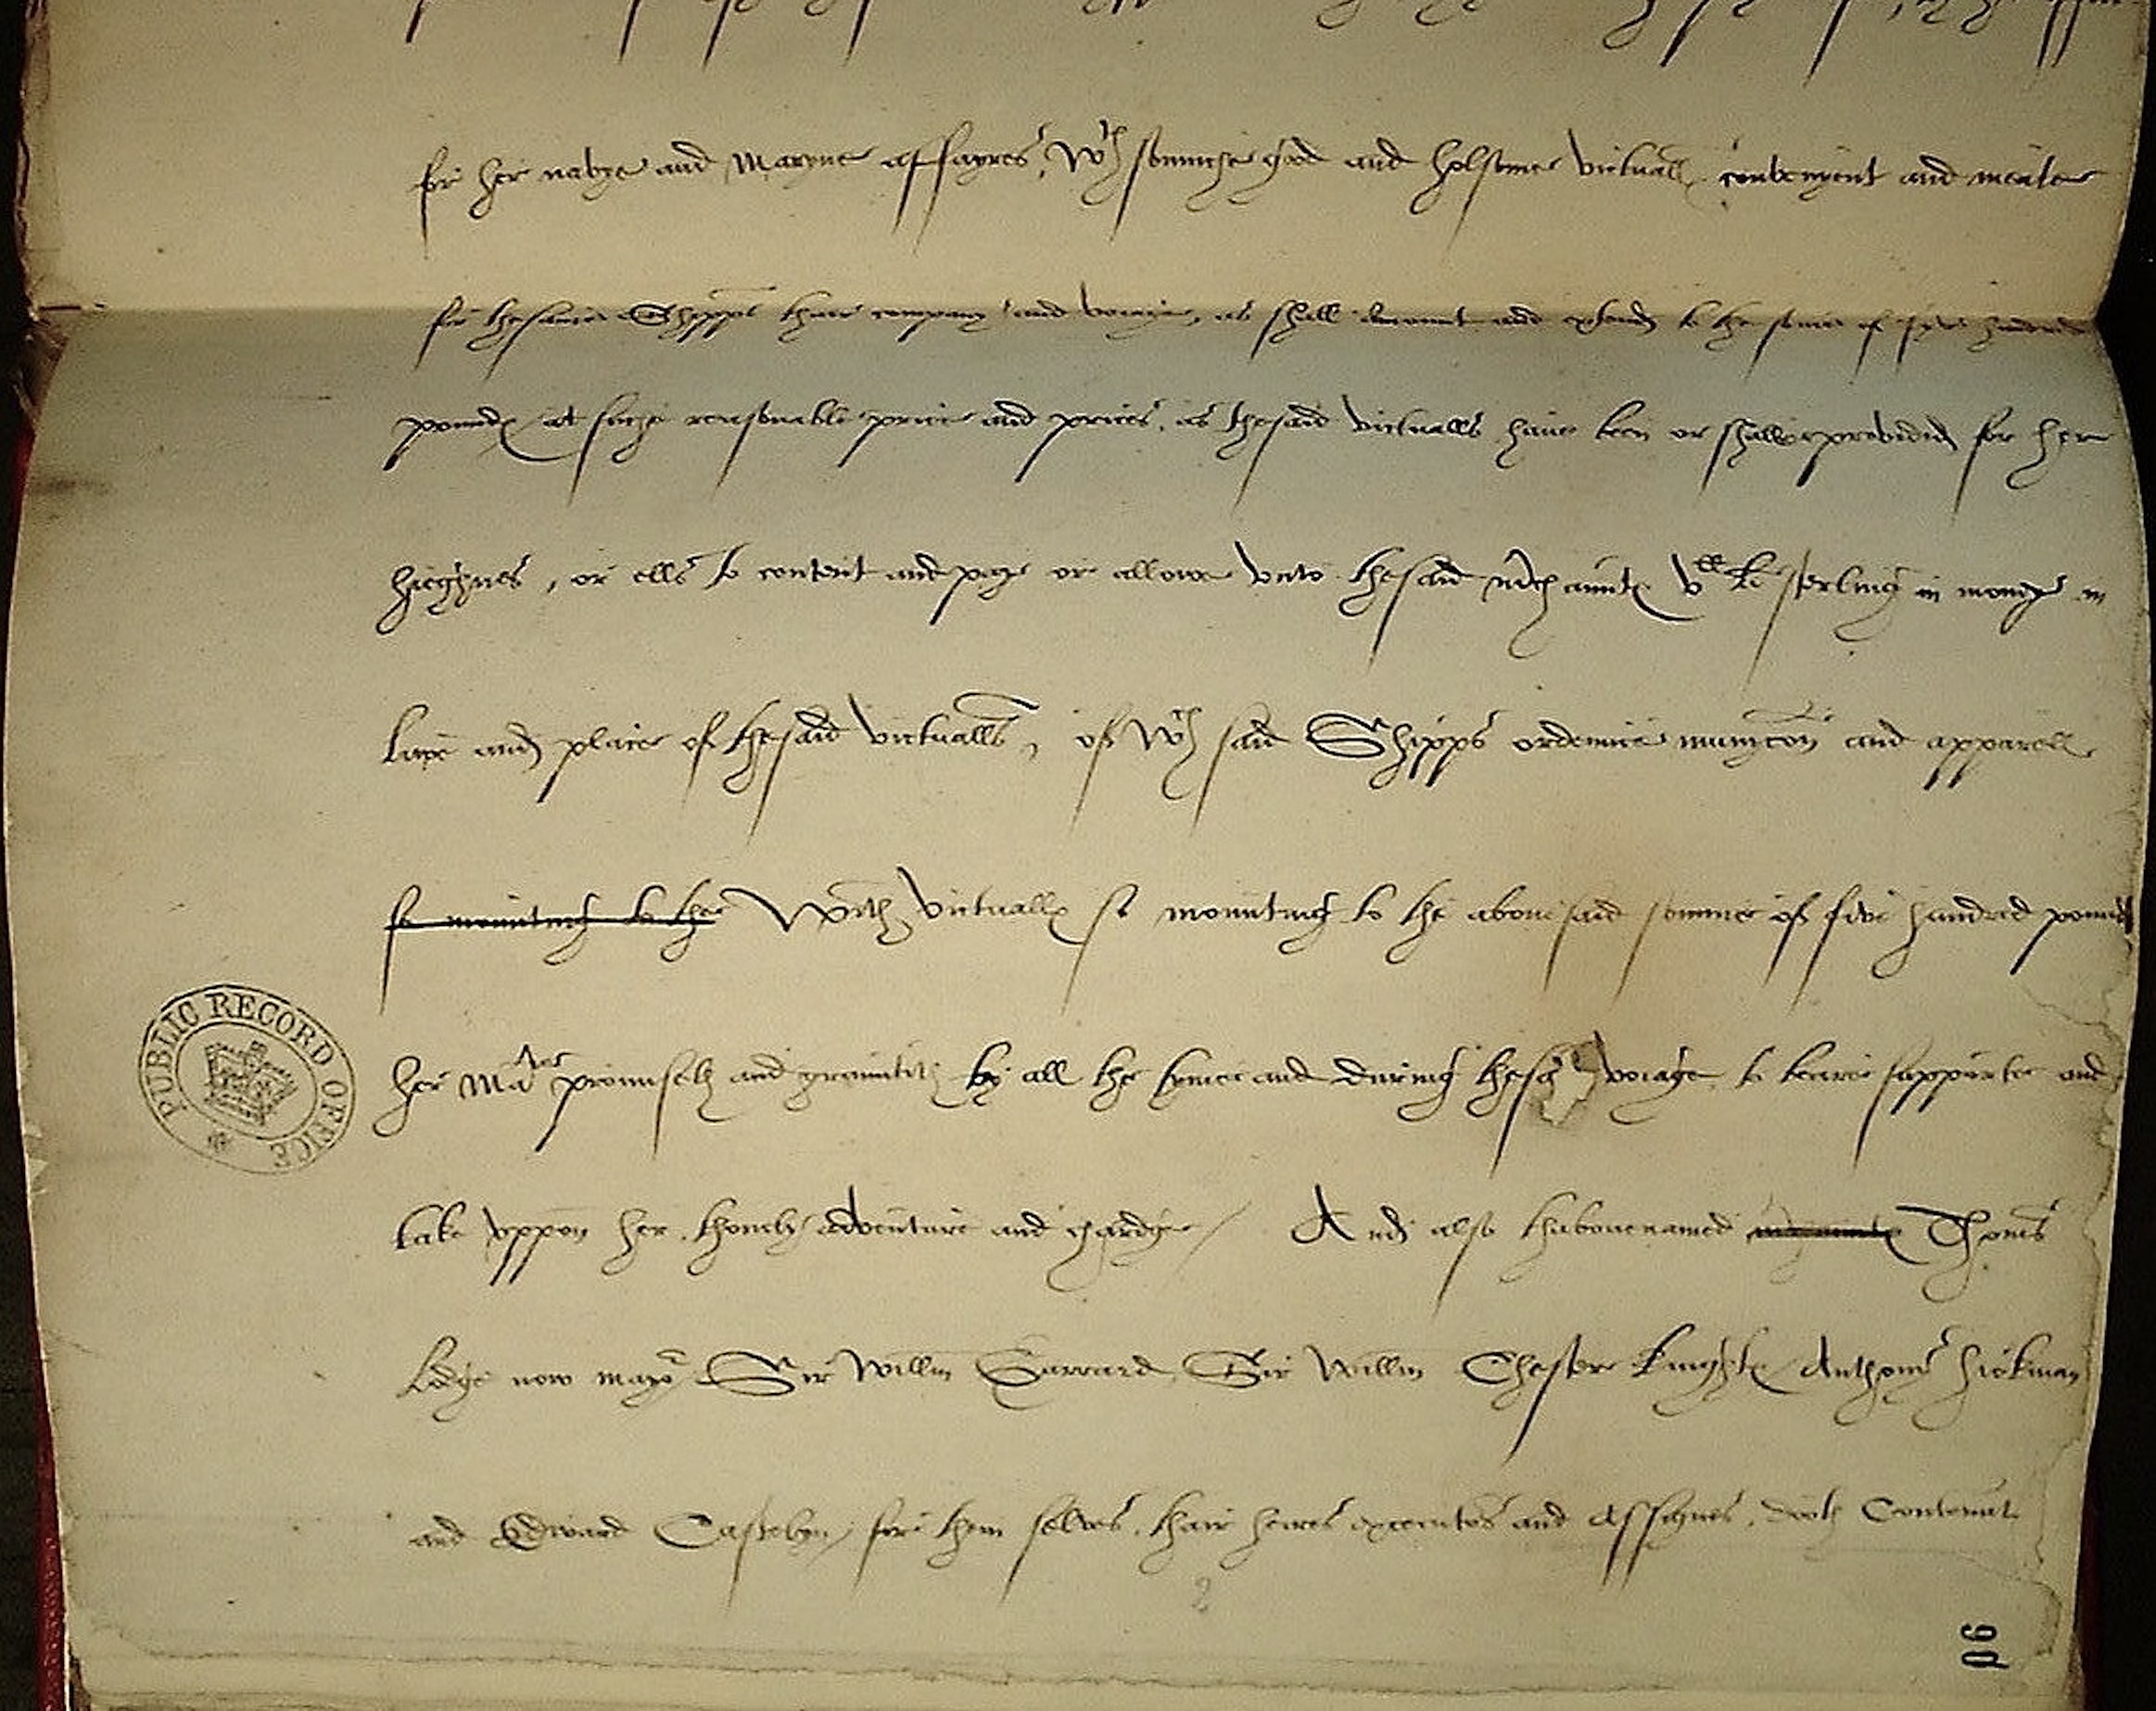 for her navye and maryne affayres, wth somuche good and holsome victuall convenyent and meate
for thesame Shipps their company and voiage, as shall amount and extend to the some of fyve hundred
pounds at suche reasonable price and prices, as thesaid victualls have been or shalbe provided for her
hieghnes, or ells to content and paye or allowe unto thesaid mrchaunts vc li sterling in money in
lewe and place of thesaid victualls, of wch said Shipps ordennce munycon and apparell
so mounting to the With victualls so mounting to the abovesaid somme of five hundred pounds
her Maties promiseth and graunteth by all the tyme and during thesd voiage to beare supporte and
take uppon her thonely adventure and chardge / And also thabovenamed Thomas
Lodge now mayor Sir Willm Garrard Sir Willm Chester knights Anthony Hickman
and Edward Castelyn, for them selves, thair heires executors and assignes, doth Covenant
2
90
PUBLIC RECORD OFFICE